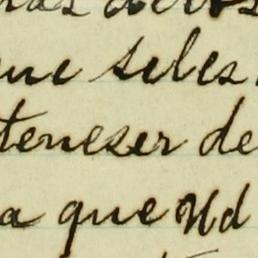 ue seles
teneser de
a que Ud